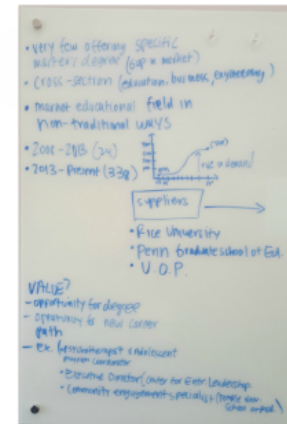 • very few offering specific
master's degree (gap in market)
• cross-section (education, business, engineering)
• market educational field in
non-traditional ways
• 2008-2013 (24)
• 2013-Present (338)
suppliers
• Rice University
• Penn Graduate School of Ed.
• U.O.P.
VALUE?
- opportunity for degree
- opportunity for new career
path
- Ex. Psychotherapist & Adolescent
Program Coordinator
• Executive Director (Center for Entr. Leadership
• Community engagement specialist